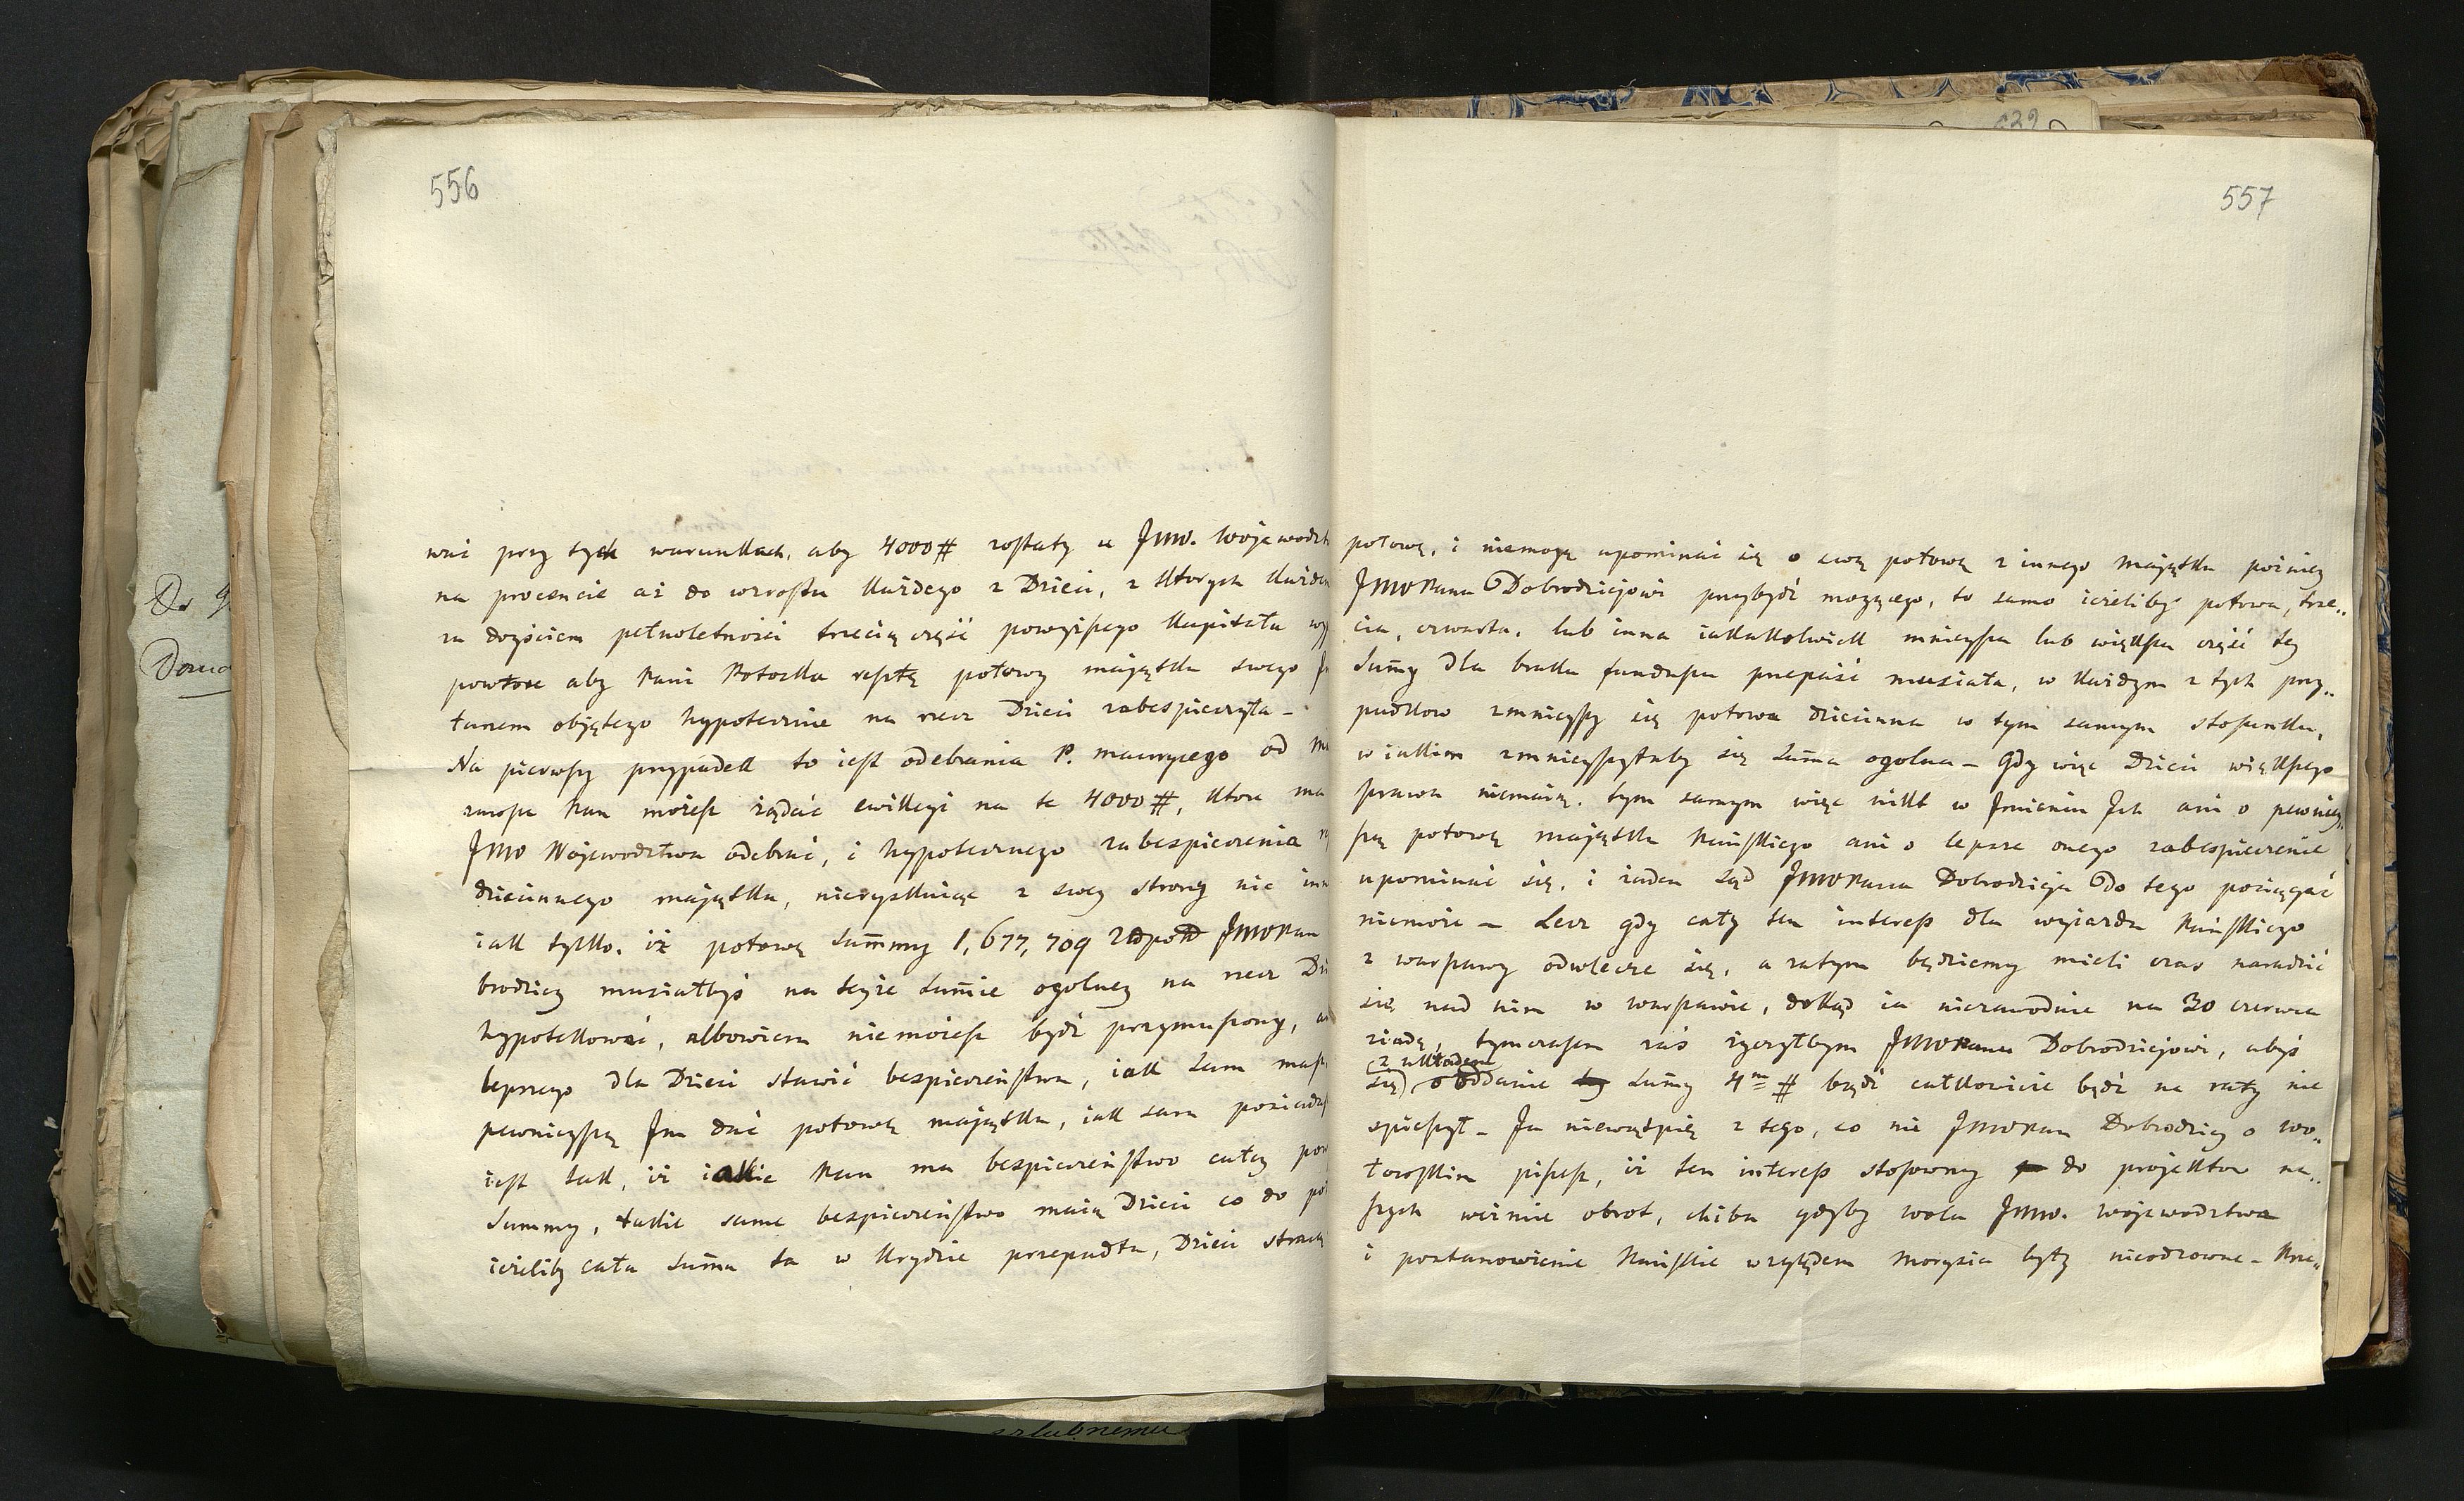 556
wać przy tych warunkach, aby 4000 # zostały u JWW. Wojewodzt
na procencie aż do wzrostu każdego z Dzieci, z których każde
za dojściem pełnoletności trzecią część powyższego kapitału
powtore aby Pani Potocka resztę połowy majątku swego
tanem objętego hypotecznie na rzecz Dzieci zabespieczyła –
Na pierwszy przypadek to iest odebrania P. maurycego od
Pan możesz żądać ewikcyi na te 4000 #, ktore ma
JWW Wojewodztwa odebrać, i hypotecznego zabespieczenia
dziecinnego majątku, nieryzkuiąc z swey strony nic
iak tylko, iż połowę Summy 1,677,709 JWWPan
brodziey musiałbyś na teyże Summie ogolney na rzecz
hypotekować, albowiem niemożesz bydź przymuszony,
lepszego dla Dzieci stawić bezpieczeństwa, iak sam masz
pewnieyszą Im dać połowę majątku, iak sam posiadasz
iest tak, iż iakie Pan ma bespieczeństwo całey
Summy, takie same bezpieczeństwo maią Dzieci co do
ieżeliby cała Summa ta w Krydzie przepadła, Dzieci
557
połowę, i niemogą upominać się o swą połowę z innego majątku poźniey
JWWPanu Dobrodziejowi przybydź mogącego, to samo ieżeliby połowa, trze„
cia, czwarta, lub inna iakakolwiek mnieysza lub większa część tey
Summy dla braku funduszu przepaść musiała, w każdym z tych przy„
padkow zmnieyszy się połowa dziecinna w tym samym stosunku,
w iakim zmnieyszyłaby się Summa ogolna – Gdy więc Dzieci większego
prawa niemaią, tym samym więc nikt w Imieniu Ich ani o pewniey„
szą połowę majątku Pańskiego ani o lepsze onego zabespieczenie
upominać się, i żaden Sąd JWWPana Dobrodzieja do tego pociągać
niemoże – Lecz gdy cały ten interess dla wyiazdu Pańskiego
z warszawy odwlecze się, a zatym będziemy mieli czas naradzić
się nad nim w warszawie, dokąd ia niezawodnie na 30 czerwca
ziadę, tymczasem zaś życzyłbym JWWPanu Dobrodziejowi, abyś
z układem
się oddanie Summy 4m # bądź całkowicie bądź na raty nie
spieszył – Ja niewątpię z tego, co mi JWWPan Dobrodziey o wo„
łowskim piszesz, iż ten interess stosowny do projektow na„
szych weźmie obrot, chiba gdyby wola JWW. Wojewodztwa
i postanowienie Pańskie względem Morysia były nieodzowne –